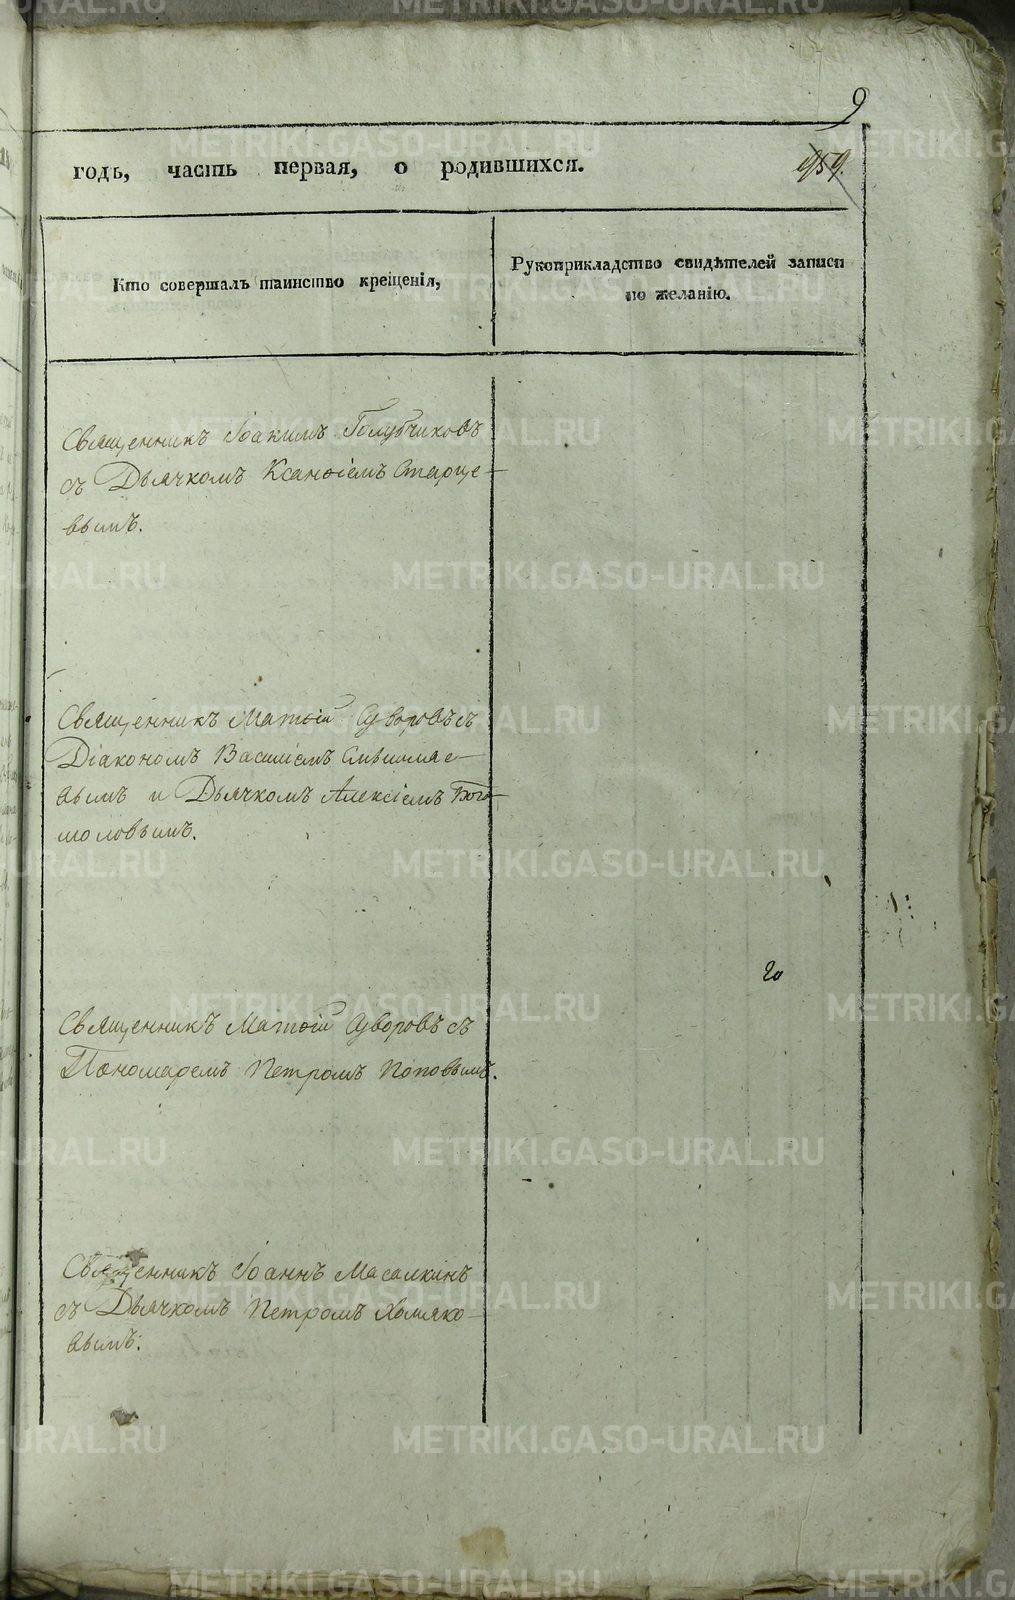 9
годъ, часть первая, о родившихся.
959.
Кто совершалъ таинство крещенія,
Рукоприкладство свидѣтелей записи
по желанію.
Священникъ Іоакимъ Голубчиковъ
съ Дьячкомъ Ксанѳіемъ Старце-
вымъ.
Священникъ Матѳій Суворовъ съ
Діакономъ Василіемъ
вымъ и Дьячкомъ Алексіемъ Бого-
моловымъ.
Священникъ Матѳій Суворовъ съ
Пономаремъ Петромъ Поповымъ.
Священникъ Іоаннъ Масалкинъ
съ Дьячкомъ Петромъ Хомяко-
вымъ.
METRIKI.GASO-URAL.RU